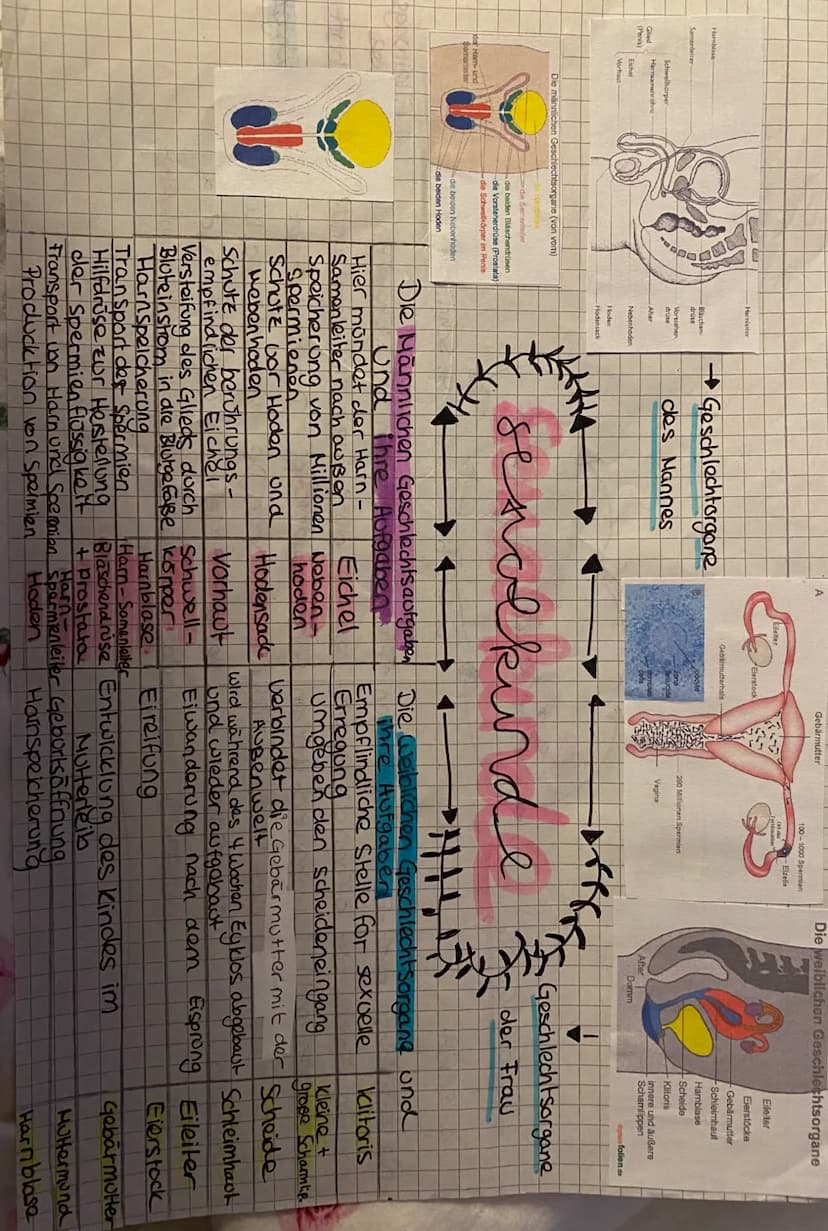 Harnblase
Samenleiter
Schwellkörper
Harnsamenröhre
Glied
(Penis)
Eichel
Vorhaut
Harnleiter
Bläschen-
drüse
Vorsteher-
drüse
After
Nebenhoden
Hoden
Hodensack
→ Geschlechtorgane
des Mannes
A
Gebärmutter
Eileiter
Eierstock
Gebärmutterhals
100 – 1000 Spermien
Eizelle
200 Millionen Spermien
Vagina
Die weiblichen Geschlechtsorgane
Eileiter
Eierstöcke
Gebärmutter
Schleimhaut
Harnblase
Scheide
Klitoris
innere und äußere
Schamlippen
After
Damm
folien.de
Die männlichen Geschlechtsorgane (von vorn)
die Samenleiter
die beiden Bläschendrüsen
die Vorsteherdrüse (Prostata)
die Schwellkörper im Penis
die beiden Nebenhoden
die beiden Hoden
der Harn- und
Samenleiter
Sexualkunde
Geschlechtsorgane
der Frau
Die Männlichen Geschlechtsaufgaben
und ihre Aufgaben
Hier mündet der Harn-
Samenleiter nach außen
Eichel
Speicherung von Millionen
Spermienen
Neben-
hoden
Schutz vor Hoden und
Nebenhoden
Hodensack
Schutz der berührungs-
empfindlichen Eichel
Vorhaut
Versteifung des Glieds durch
Bluteinstrom in die Blutgefäße
Schwell-
körper
Harnspeicherung
Harnblase
Transport der Spermien
Harn-Samenleiter
Hilfdrüse zur Herstellung
der Spermienflüssigkeit
Bläschendrüse
+ Prostata
Transport von Harn und Spermien
Harn-
Spermienleiter
Producktion von Spermien
Hoden
Die weiblichen Geschlechtsorgane und
ihre Aufgaben
Empfindliche Stelle für sexuelle
Erregung
Klitoris
umgeben den Scheideneingang
Kleine +
große Schamlip
Verbindet die Gebärmutter mit der
Außenwelt
Scheide
wird während des 4 Wochen Zyklos abgebaut
und wieder aufgebaut
Schleimhaut
Eiwanderung nach dem Eisprung
Eileiter
Eireifung
Eierstock
Entwicklung des Kindes im
Mutterleib
Gebärmutter
Geburtsöffnung
Muttermund
Harnspeicherung
Harnblase